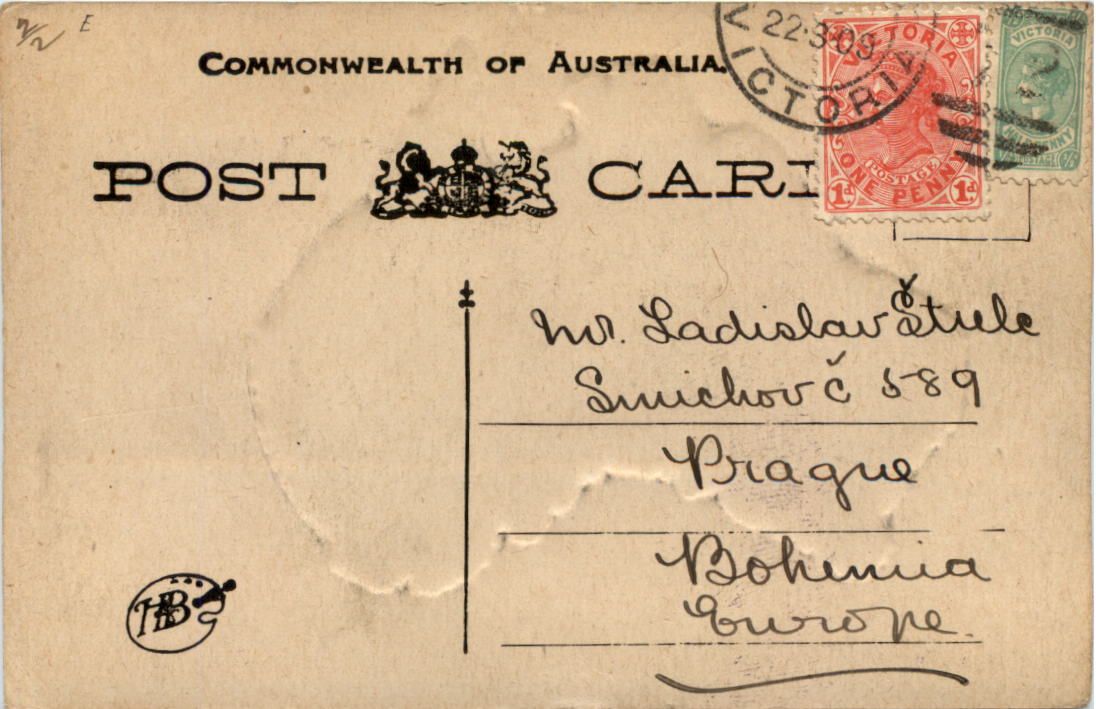 2/2 E
COMMONWEALTH OF AUSTRALIA.
POST CARD
22·3·09
VICTORIA
VICTORIA
POSTAGE
ONE PENNY
1d 1d
VICTORIA
PENNY
POSTAGE
Mr. Ladislav Štulc
Smichov č 589
Prague
Bohemia
Europe.
HB